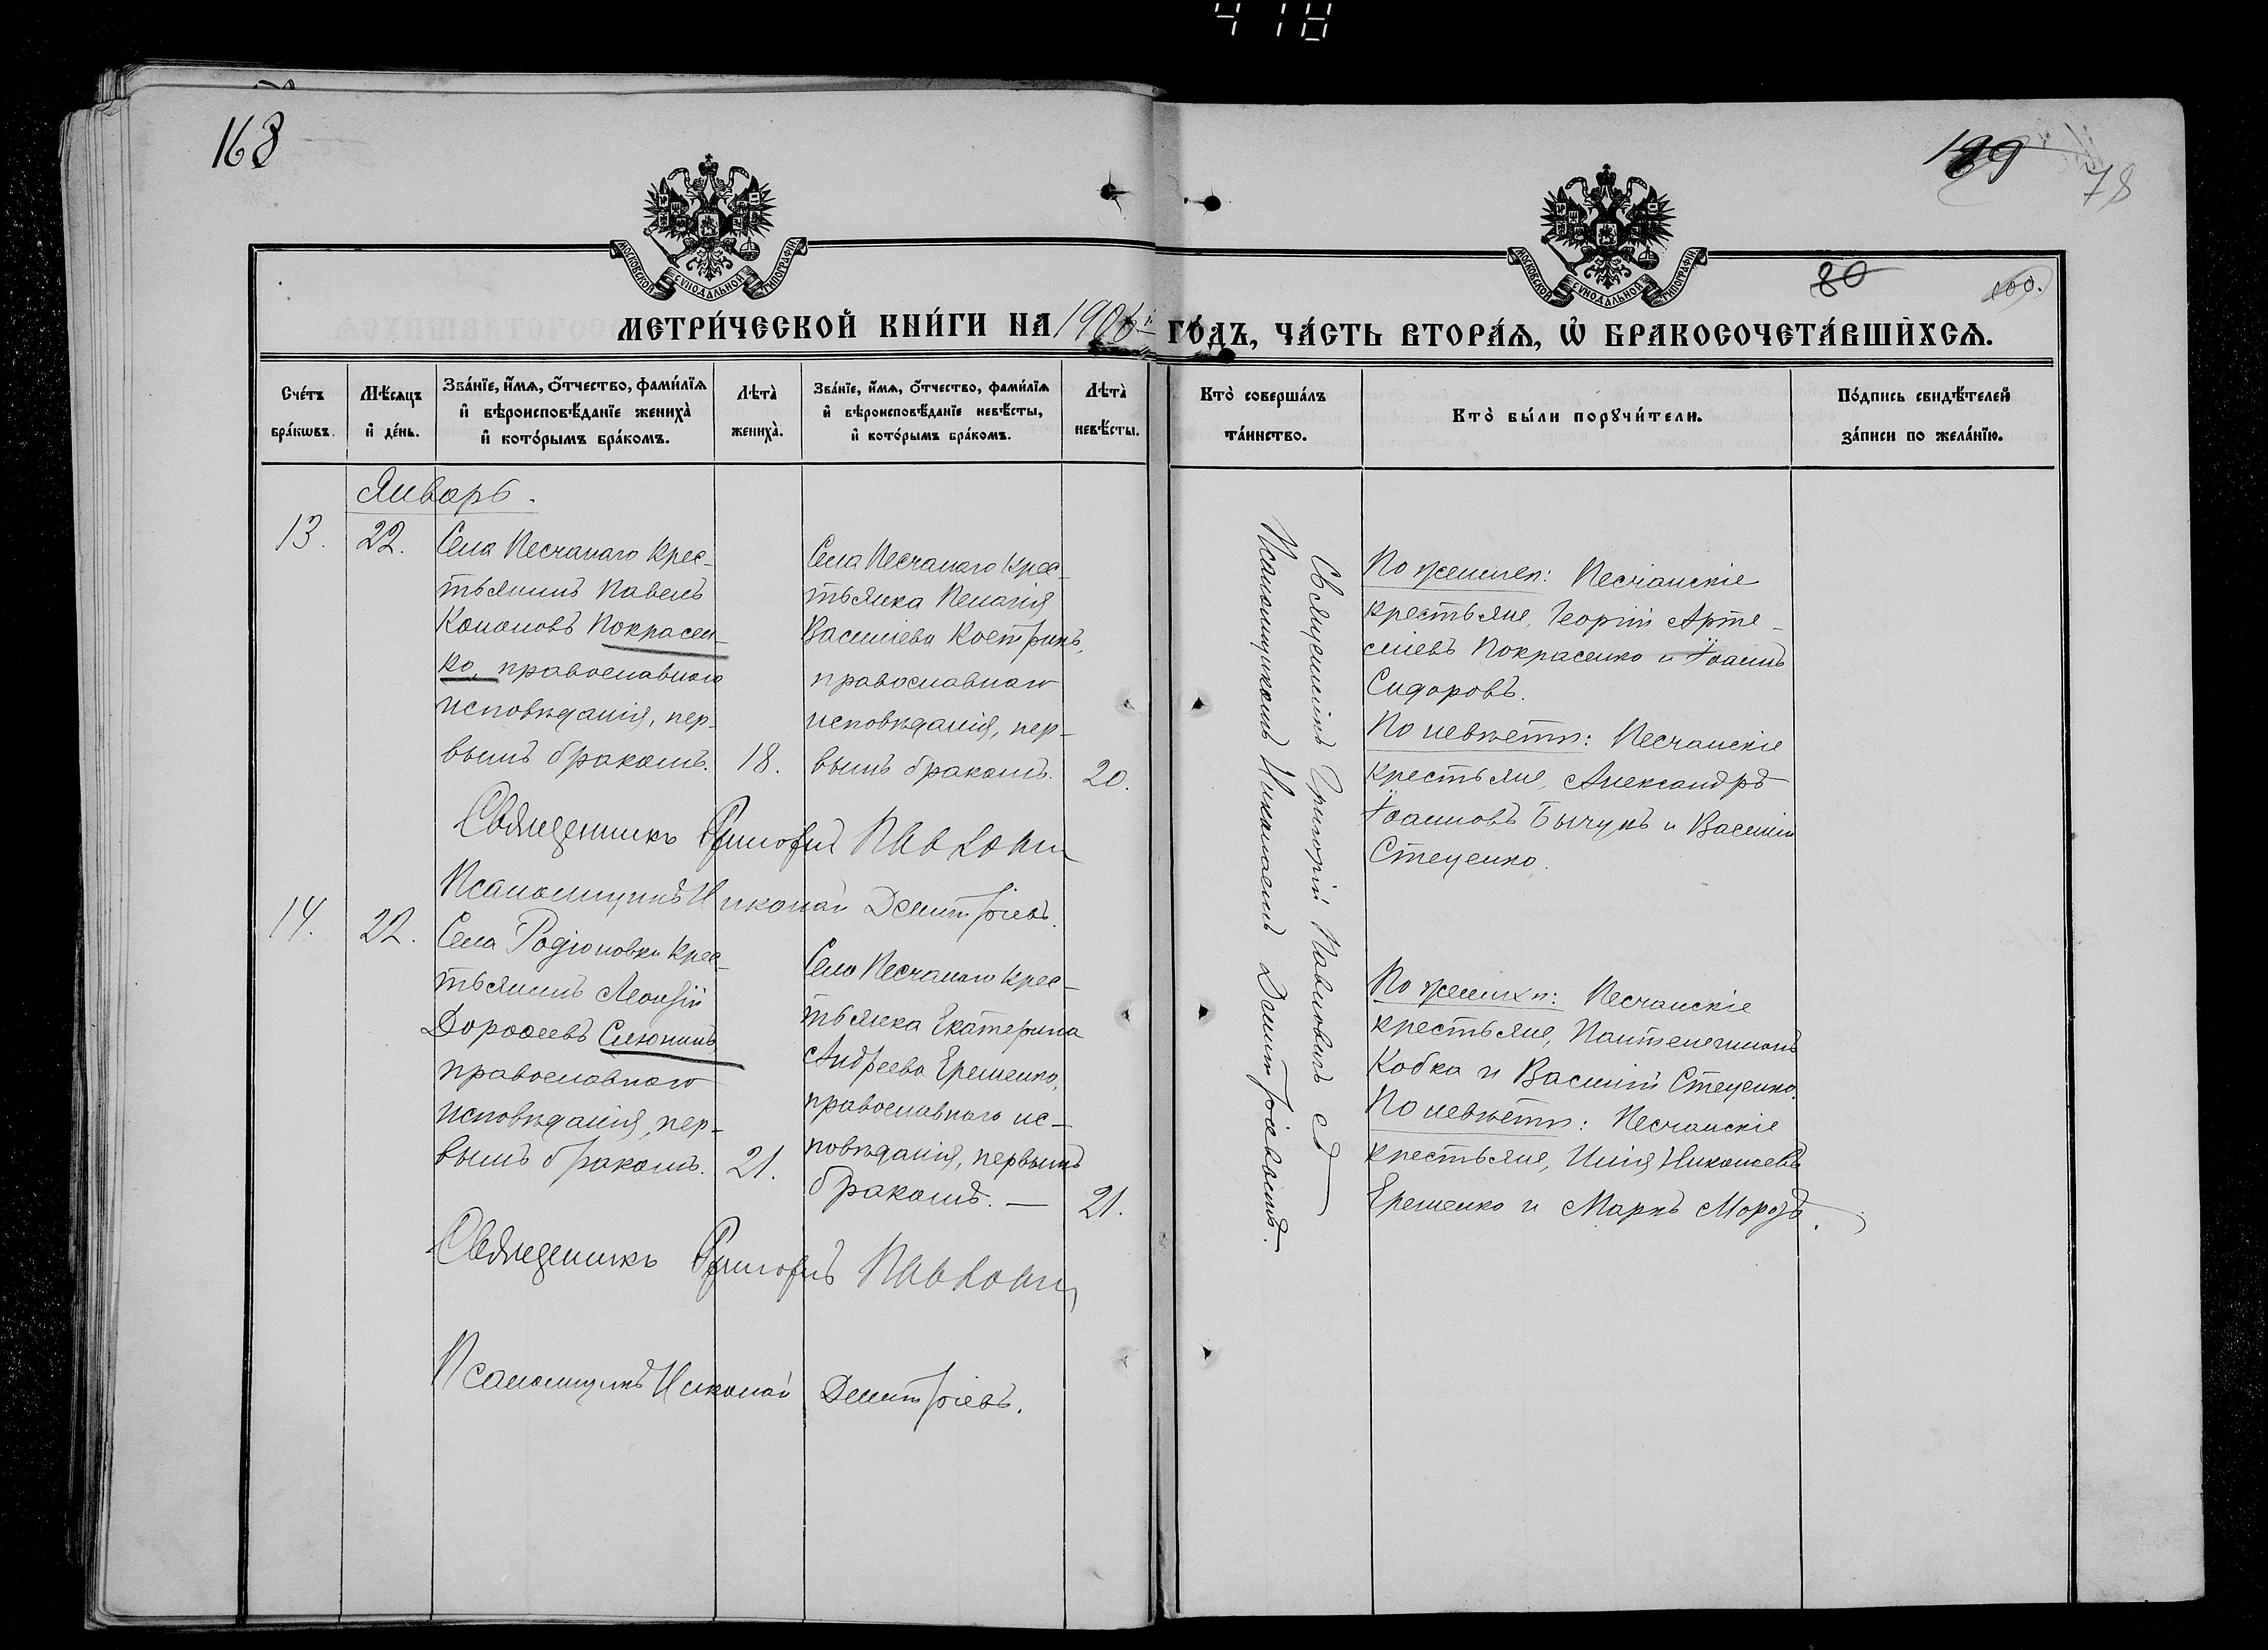 418
168
78
80
100.
МОСКОВСКОЙ СѴНОДАЛЬНОЙ ТИПОГРАФІИ
МОСКОВСКОЙ СѴНОДАЛЬНОЙ ТИПОГРАФІИ
МЕТРИ́ЧЕСКОЙ КНИ́ГИ НА 1906й ГО́ДЪ, ЧА́СТЬ ВТОРА́Ѧ, Ѡ҆ БРАКОСОЧЕТА́ВШИХСѦ.
Сче́тъ бра́кѡвъ.
Мѣ́сяцъ и҆ де́нь.
Зва́нїе, и҆́мѧ, ѻ҆́тчество, фами́лїѧ
и҆ вѣроисповѣ́данїе жениха̀
и҆ кото́рымъ бра́комъ.
Лѣта̀ жениха̀.
Зва́нїе, и҆́мѧ, ѻ҆́тчество, фами́лїѧ
и҆ вѣроисповѣ́данїе невѣ́сты,
и҆ кото́рымъ бра́комъ.
Лѣта̀ невѣ́сты.
Кто̀ соверша́лъ та́инство.
Кто̀ бы́ли порꙋчи́тели.
По́дпись свидѣ́телей
за́писи по жела́нїю.
Январь.
13.
22.
Села Песчанаго крес-
тьянинъ Павелъ
Кононовъ Покрасен-
ко, православнаго
исповѣданія, пер-
вымъ бракомъ.
18.
Села Песчанаго крес-
тьянка Пелагія
Васильева Кострикъ,
православнаго
исповѣданія, пер-
вымъ бракомъ.
20.
Священникъ Григорій Павловичъ
Псаломщикомъ Николаемъ Димитріевымъ.
По женихѣ: Песчанскіе
крестьяне, Георгій Арте-
міевъ Покрасенко и Іоаннъ
Сидоровъ.
По невѣстѣ: Песчанскіе
крестьяне, Александръ
Іоанновъ Бычукъ и Василій
Стеценко.
Священникъ Григорій
Псаломщикъ Николай Димитріевъ.
14.
22.
Села Родіоновки крес-
тьянинъ
Дороѳеевъ
православнаго
исповѣданія, пер-
вымъ бракомъ.
21.
Села Песчанаго крес-
тьянка Екатерина
Андреева Ерешенко,
православнаго ис-
повѣданія, первымъ
бракомъ. —
21.
По женихѣ: Песчанскіе
крестьяне, Пантелеимонъ
Кобка и Василій Стеценко.
По невѣстѣ: Песчанскіе
крестьяне, Илія Николаевъ
Ерешенко и Маркъ Морозъ.
Священникъ Григорій
Псаломщикъ Николай Димитріевъ.